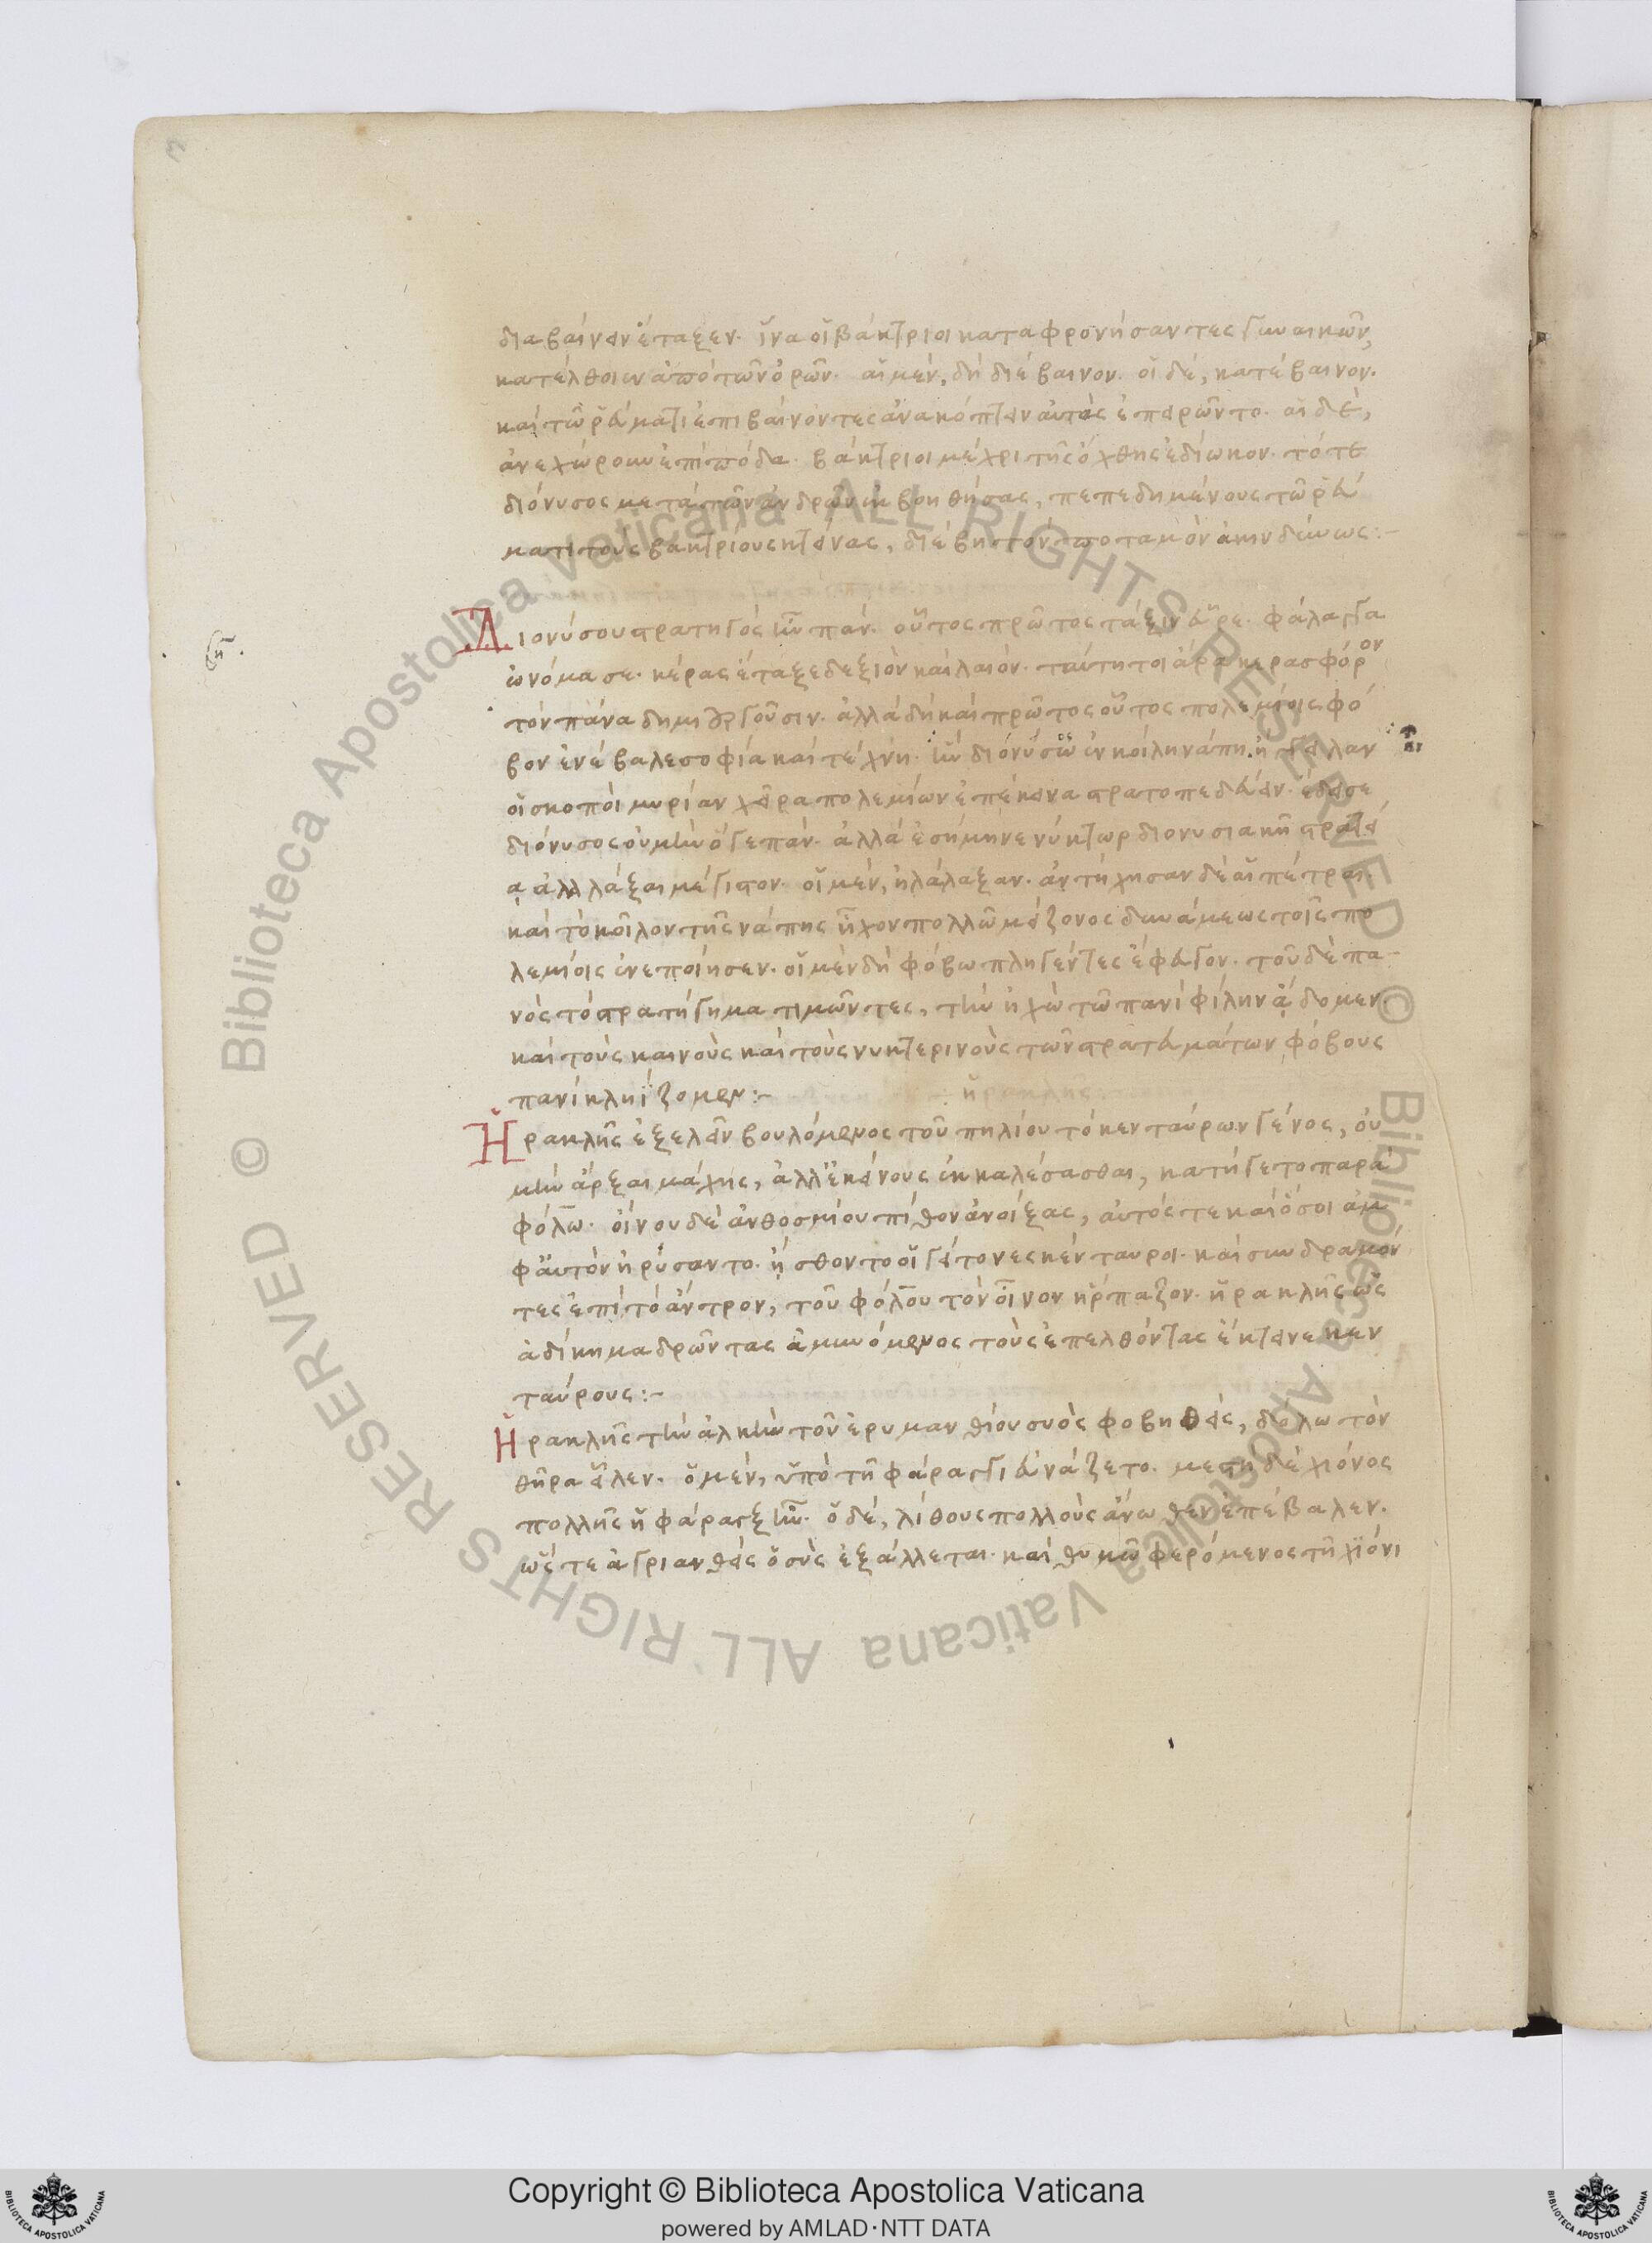 διαβαίνειν ἔταξεν. ἵνα οἱ βάκτριοι καταφρονήσαντες γυναικῶν,
κατέλθοιεν ἀπὸ τῶν ὀρῶν. αἱ μέν, δὴ διέβαινον. οἱ δέ, κατέβαινον.
καὶ τῶ ῥεύματι ἐπιβαίνοντες ἀνακόπτειν αὐτὰς ἐπειρῶντο. αἱ δέ,
ἀνεχώρουν ἐπὶ πόδα. βάκτριοι μέχρι τῆς ὄχθης ἐδίωκον. τότε
διόνυσος μετὰ τῶν ἀνδρῶν ἐκβοηθήσας, πεπεδημένους τῶ ῥεύ
ματι τοὺς βακτρίους κτείνας, διέβη τὸν ποταμὸν ἀκινδύνως:-
Διονύσου στρατηγὸς ἦν πάν. οὗτος πρῶτος τάξιν εὗρε. φάλαγγα
ὠνόμασε. κέρας ἔταξε δεξιὸν καὶ λαιόν. ταύτη τοι ἄρα κερασφόρον
τὸν πάνα δημιουργοῦσιν. ἀλλὰ δὴ καὶ πρῶτος οὗτος πολεμίοις φό
βον ἐνέβαλε σοφία καὶ τέχνη. ἦν διόνυσος ἐν κοίλη νάπη. ἤγγειλαν
οἱ σκοποὶ μυρίαν χεῖρα πολεμίων ἐπέκεινα στρατοπεδεύειν. ἔδεισε
διόνυσος οὐ μὴν ὅγε πάν. ἀλλὰ ἐσήμηνε νύκτωρ διονυσιακῆ στρατεί
α ἀλλάξαι μέγιστον. οἱ μέν, ἠλάλαξαν. ἀντήχησαν δὲ αἱ πέτραι.
καὶ τὸ κοῖλον τῆς νάπης ἦχον πολλῶ μείζονος δυνάμεως τοῖς πο
λεμίοις ἐνεποίησεν. οἱ μὲν δὴ φόβω πληγέντες ἔφευγον. τοῦ δὲ πα-
νὸς τὸ στρατήγημα τιμῶντες, τὴν ἠχὼ τῶ πανὶ φίλην ᾄδομεν.
καὶ τοὺς καινοὺς καὶ τοὺς νυκτερινοὺς τῶν στρατευμάτων φόβους
πανὶ κληΐζομεν:-
Ἡρακλῆς ἐξελεῖν βουλόμενος τοῦ πηλίου τὸ κενταύρων γένος, οὐ
μὴν ἄρξαι μάχης, ἀλλ' ἐκείνους ἐκκαλέσασθαι, κατήγετο παρὰ
φόλω. οἴνου δὲ ἀνθοσμίου πίθον ἀνοίξας, αὐτός τε καὶ ὅσοι ἀμ
φ' αὐτὸν ἠρύσαντο. ᾔσθοντο οἱ γείτονες κένταυροι. καὶ συνδραμόν
τες ἐπὶ τὸ ἄντρον, τοῦ φόλου τὸν οἶνον ἥρπαζον. ἡρακλῆς ὡς
ἀδίκημα δρῶντας ἀμυνόμενος τοὺς ἐπελθόντας ἔκτεινε κεν
ταύρους:-
Ἡρακλῆς τὴν ἀλκὴν τοῦ ἐρυμανθίου συὸς φοβηθείς, δόλω τὸν
θῆρα εἷλεν. ὁ μέν, ὑπὸ τῆ φάραγγι εὐνάζετο. μεστὴ δὲ χιόνος
πολλῆς ἡ φάραγξ ἦν. ὁ δέ, λίθους πολλοὺς ἄνωθεν ἐπέβαλεν.
ὥστε ἀγριανθεὶς ὁ σῦς ἐξάλλεται. καὶ θυμῶ φερόμενος τῆ χιόνι
Copyright © Biblioteca Apostolica Vaticana
powered by AMLAD·NTT DATA